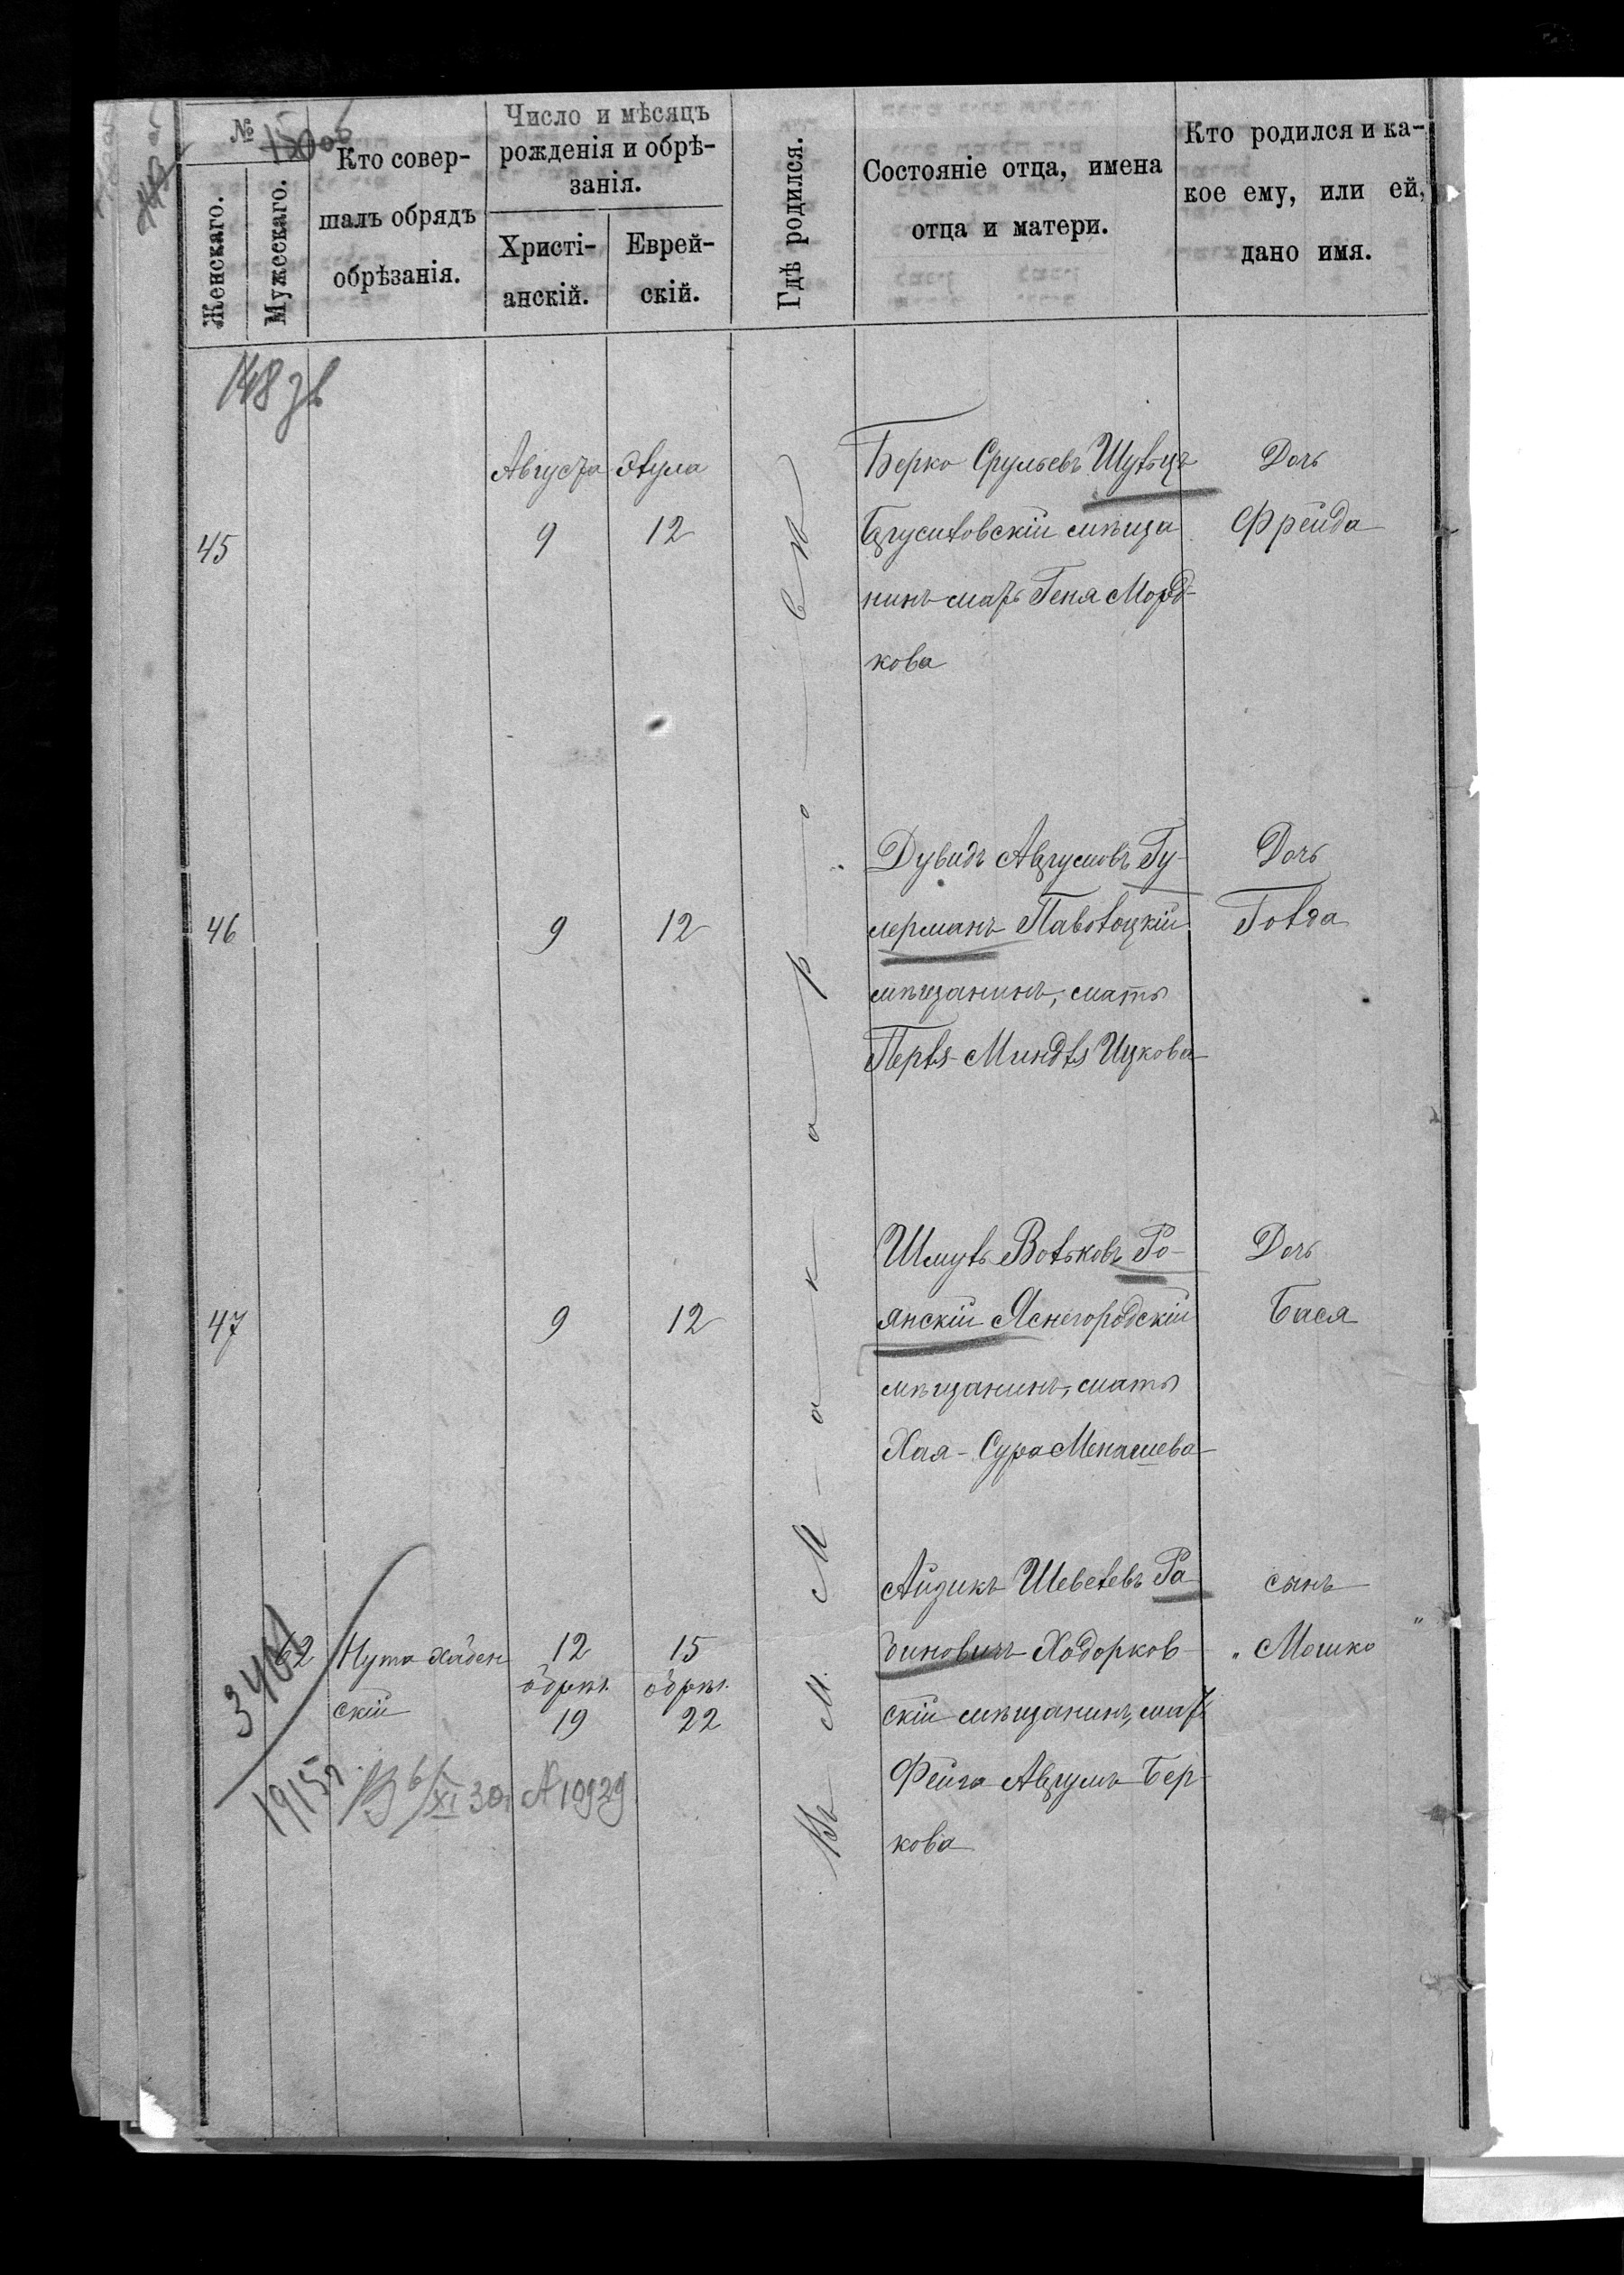 №
Женскаго.
Мужескаго.
Кто совер-
шалъ обрядъ
обрѣзанія.
Число и мѣсяцъ
рожденія и обрѣ-
занія.
Христі-
анскій.
Еврей-
скій.
Гдѣ родился.
Состояніе отца, имена
отца и матери.
Кто родился и ка-
кое ему, или ей,
дано имя.
148 зв
Въ м. Макаровѣ
45
Августа
9
Элула
12
Берко Срульевъ
мѣща
нинъ мать Геня Морд-
кова
Дочь
Фрейда
46
9
12
Дувидъ Аврумовъ Гу-
лерманъ Паволоцкій
мѣщанинъ, мать
Перль-Миндль Ицкова
Дочь
Голда
47
9
12
Шмуль Вольковъ Ро-
янскій Ясногородскій
мѣщанинъ, мать
Хая-Сура Менашева
Дочь
Бася
62
Нута
скій
12
обрѣз.
19
15
обрѣз.
22
Айзикъ Шевелевъ Ра
биновичъ Ходорков-
скій мѣщанинъ, мать
Фейга Аврумъ-Бер-
кова
сынъ
„Мошко"
1915
6/XI 30